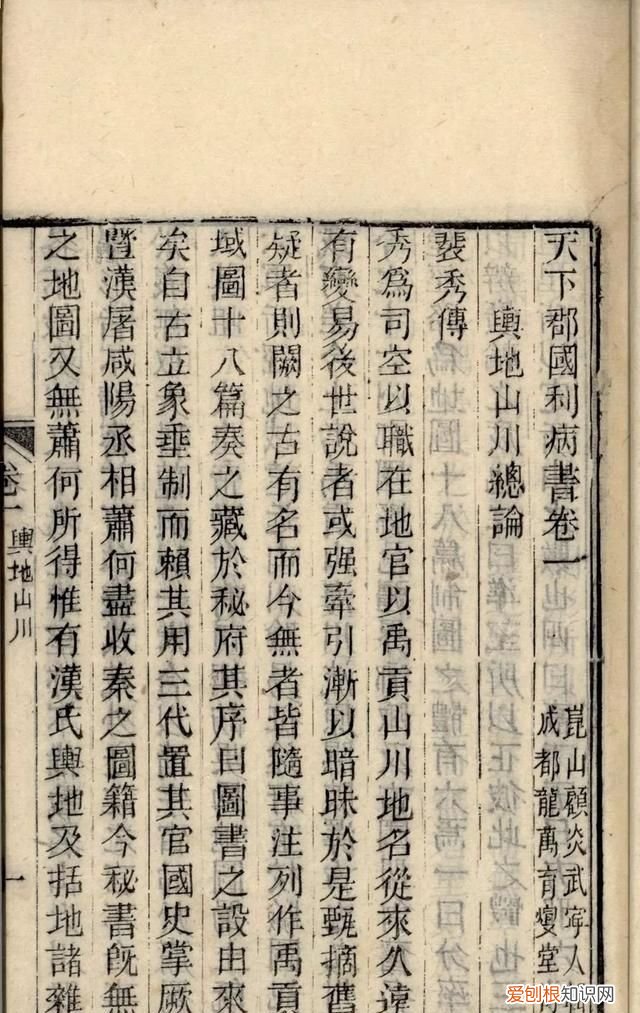 天下郡國利病書卷一
崑山顧炎武寧人
成都龍萬育燮堂
輿地山川總論
裴秀傳
秀爲司空以職在地官以禹貢山川地名從來久遠
有變易後世說者或强牽引漸以暗昧於是甄摘舊
疑者則闕之古有名而今無者皆隨事注列作禹貢
域圖十八篇奏之藏於秘府其序曰圖書之設由來
矣自古立象垂制而賴其用三代置其官國史掌厥
曁漢屠咸陽丞相蕭何盡收秦之圖籍今秘書旣無
之地圖又無蕭何所得惟有漢氏輿地及括地諸雜
卷一 輿地山川
一
爱刨根知识网
www.baogenzhishi.com